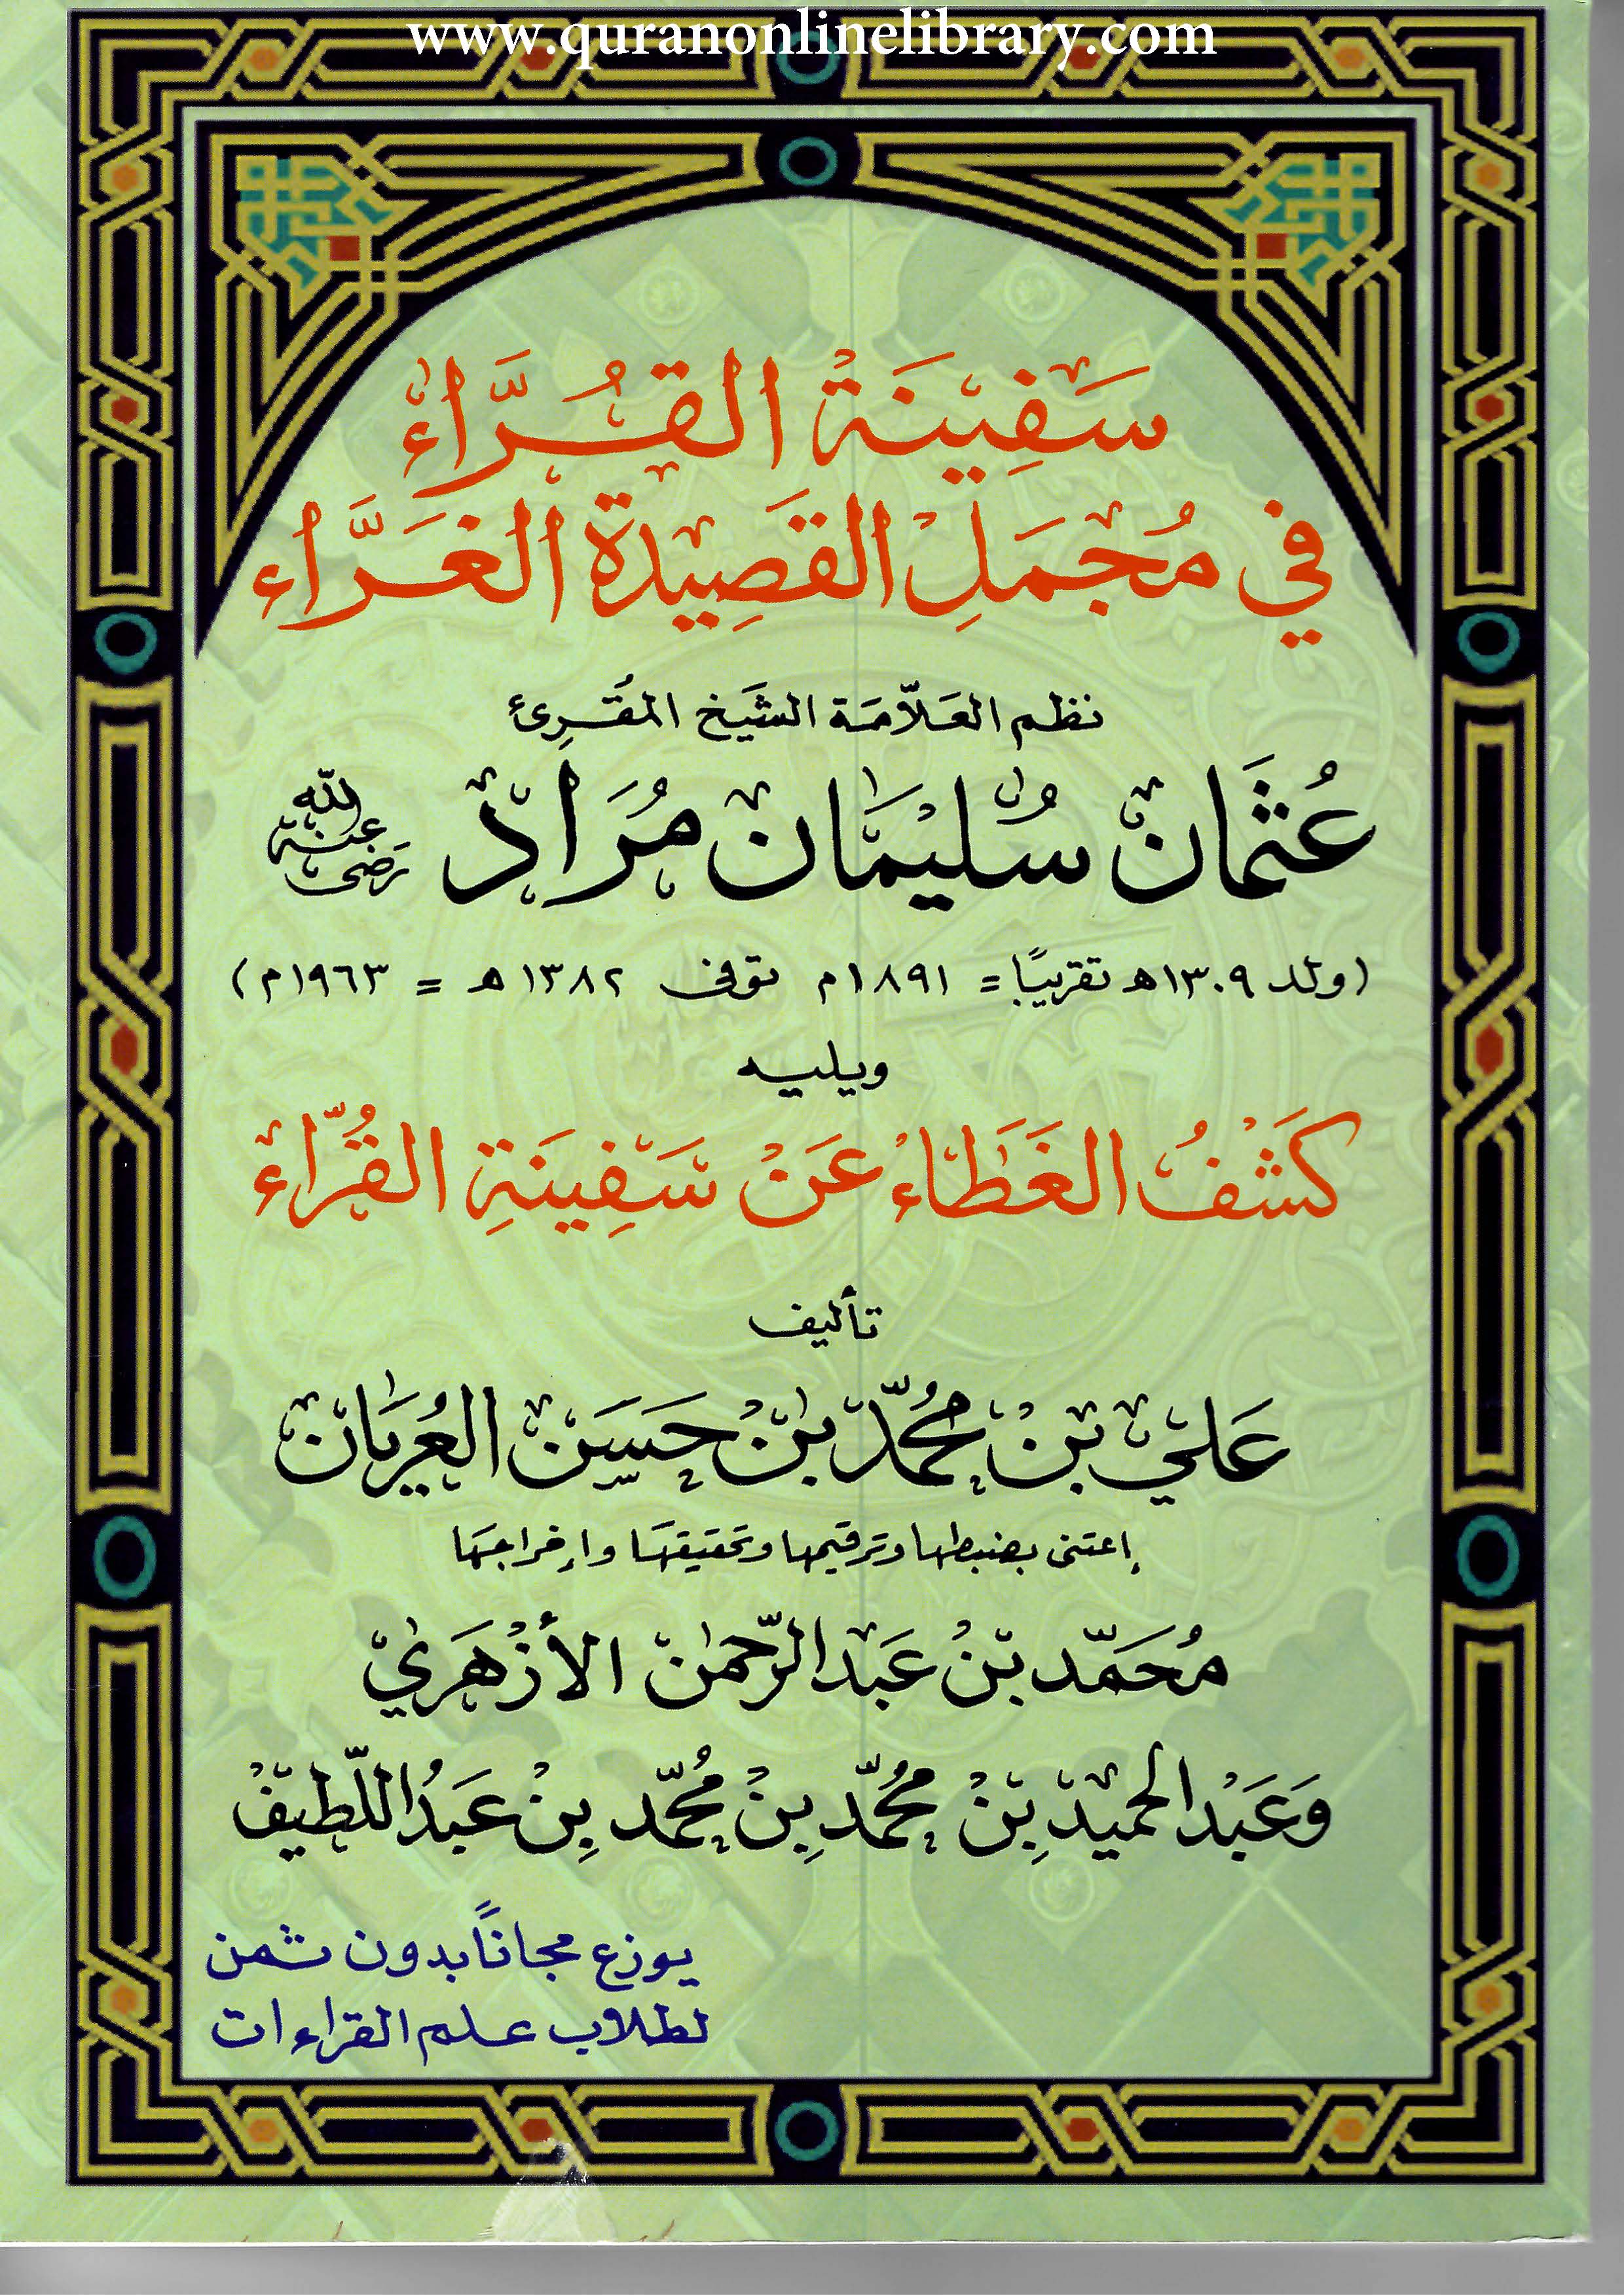 www.quranonlinelibrary.com
سَفِينَة القُرَّاء
في مُجمَلِ القَصِيدة الغَرَّاء
نظم العَلاّمَة الشيَخ المقُرِئ
عُثمَان سُليمَان مُرَاد رَضى الله عنه
(ولد ١٣٠٩ه تقريبًا = ١٨٩١م توفى ١٣٨٢ه = ١٩٦٣م)
ويليه
كَشفُ الغَطَاء عَنْ سَفِينَةِ القُرّاء
تأليف
عَلي بن محُمّد بنْ حَسَن العُريَان
إعتنى بضبطها وترقيمها وتحقيقهَا وإخراجهَا
مُحَمّد بنْ عَبد الرّحمٰن الأزهَري
وَعَبْد الحميد بِنْ محُمّد بِنْ محُمّد بِنْ عَبدُ اللّطيف
يوزع مجانًا بدون ثمن
لطلاب علم القراءات